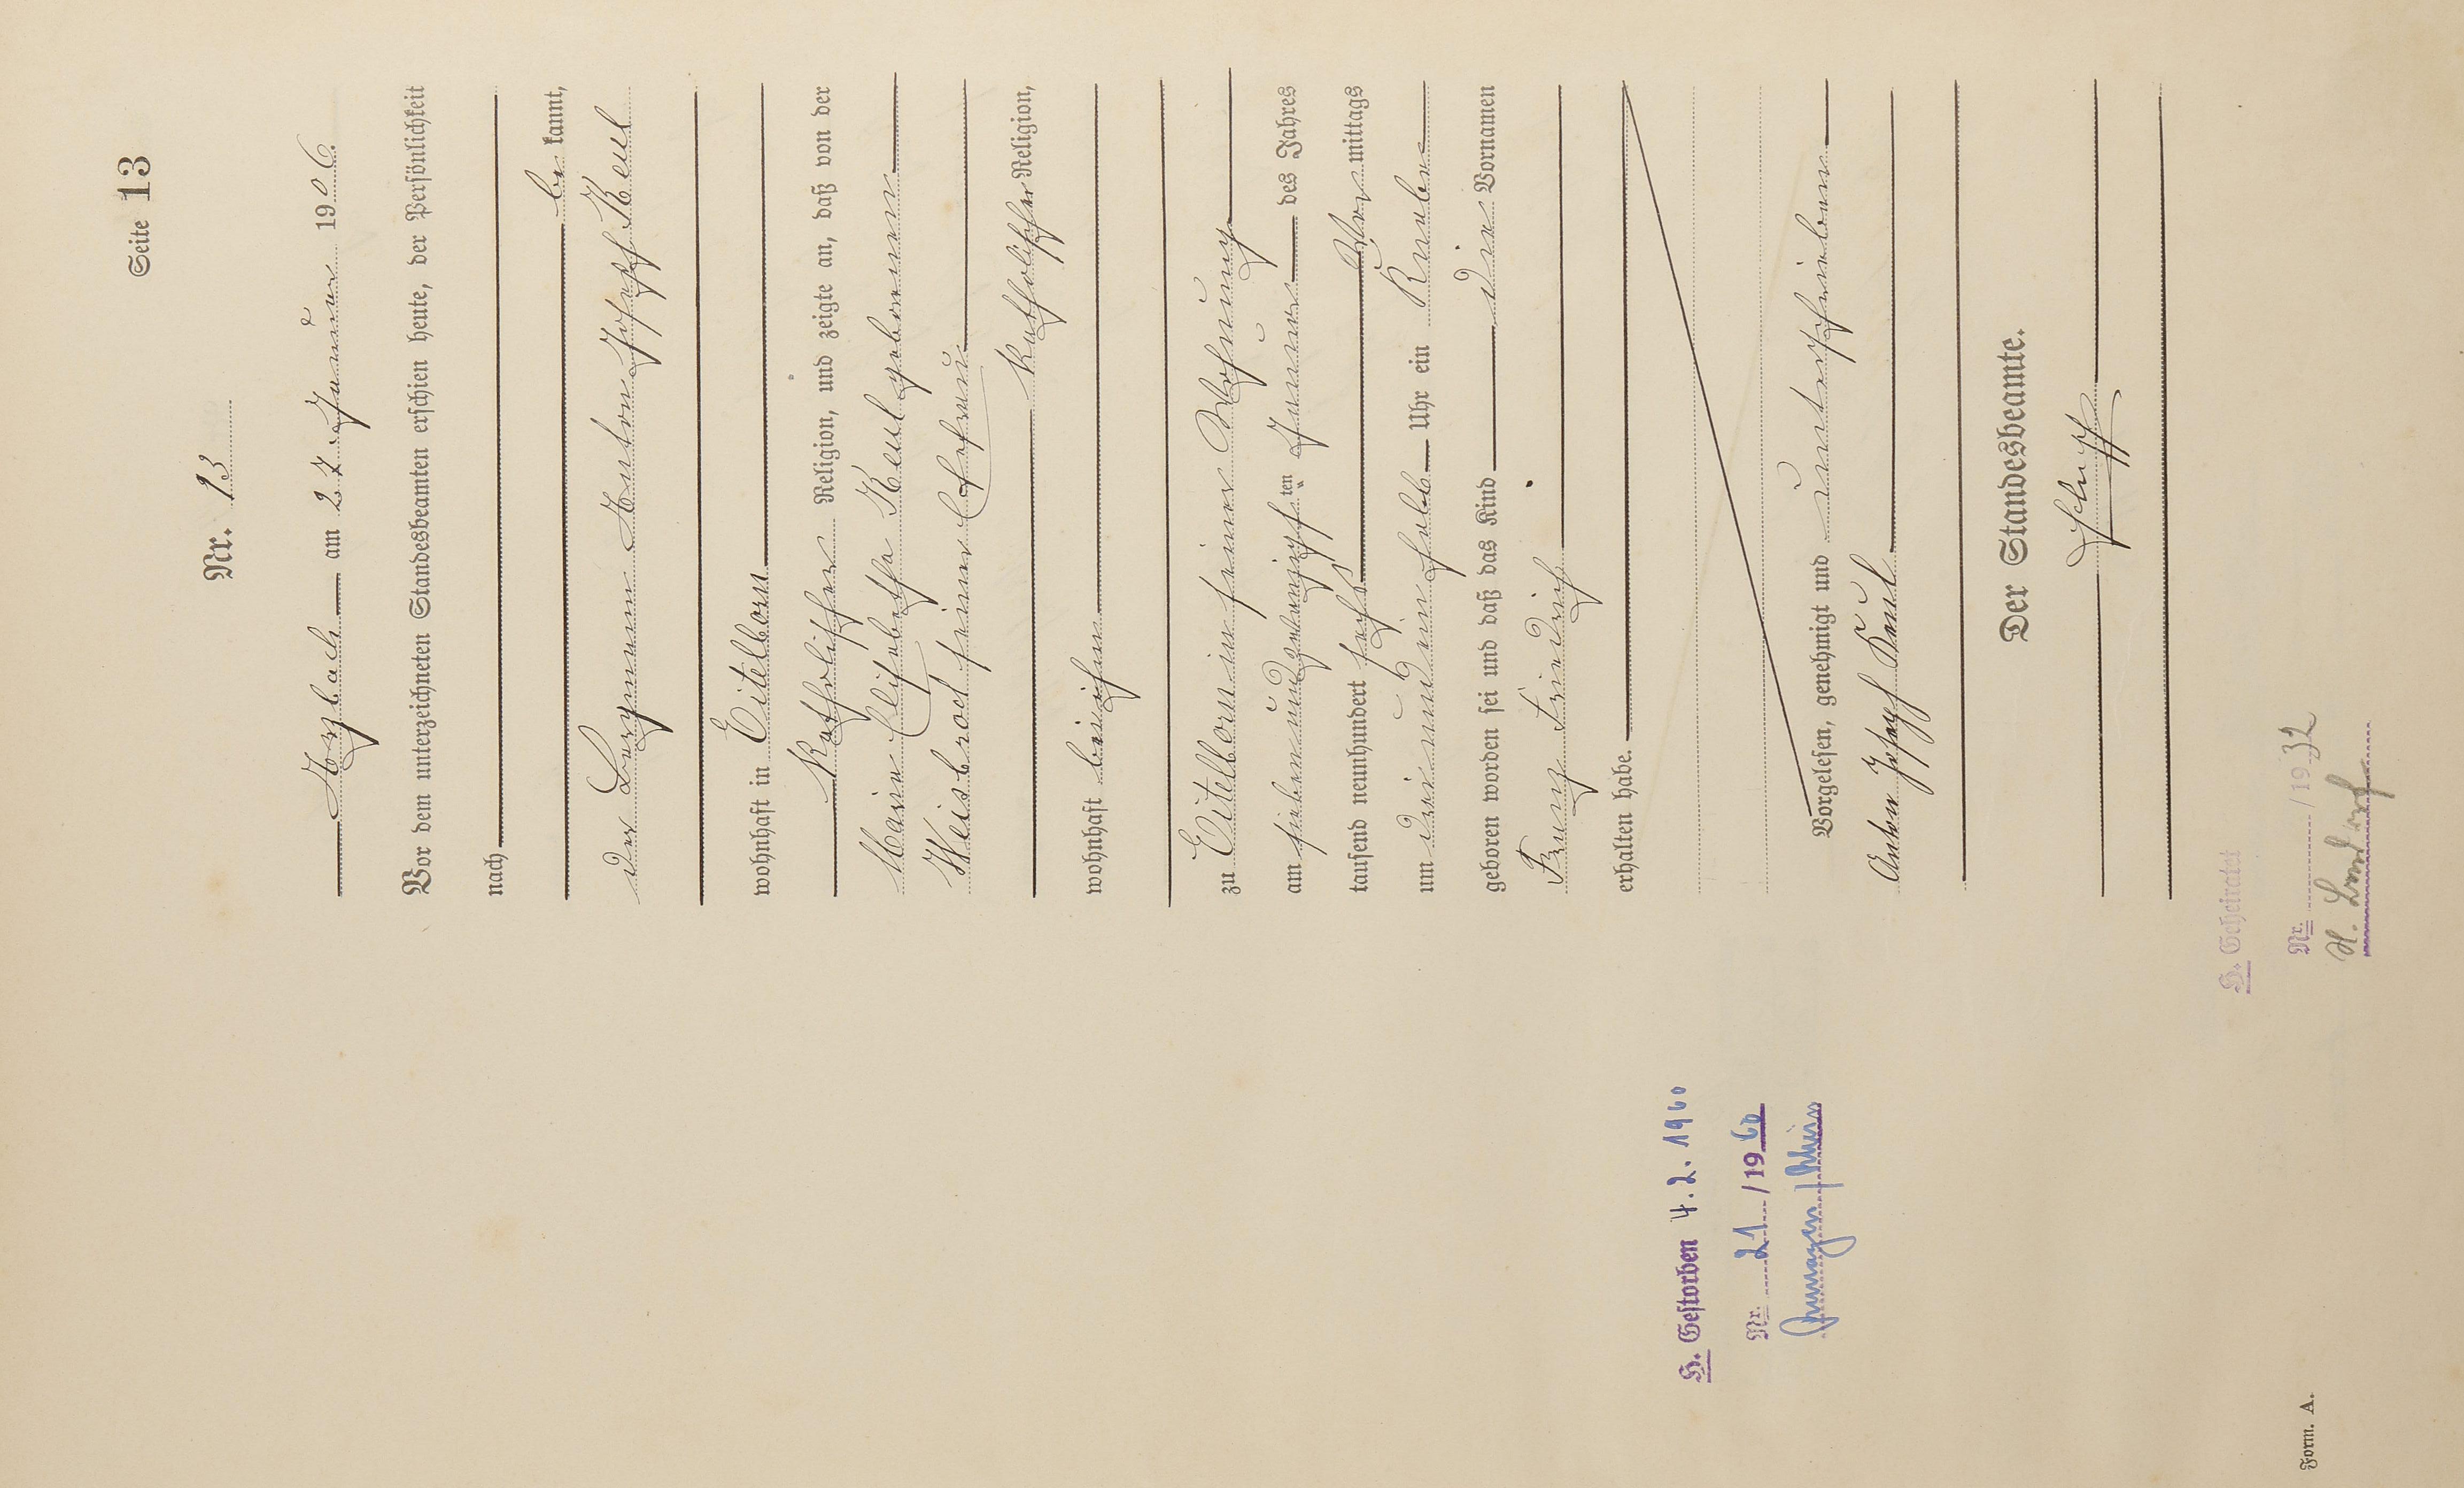 Seite 13
Nr. 13
Arzbach am 27. Januar 1906.
Vor dem unterzeichneten Standesbeamten erschien heute, der Persönlichkeit
nach
be kannt,
der Bergmann Anton Joseph Keul
wohnhaft in Eitelborn
katholischer Religion, und zeigte an, daß von der
Maria Elisabetha Keul geborenen
Weisbrod seiner Ehefrau
katholischer Religion,
wohnhaft bei ihm
zu Eitelborn in seiner Wohnung
am siebenundzwanzigsten Januar des Jahres
tausend neunhundert sechs Vor mittags
um drei und ein halb Uhr ein Knabe
geboren worden sei und daß das Kind die Vornamen
Franz Friedrich
erhalten habe.
Vorgelesen, genehmigt und unterschrieben
Anton Joseph Keul
Der Standesbeamte.
H. Gestorben 4.2.1960
Nr. 21 / 1960
H. Geheiratet
Nr. / 1932
Form. A.